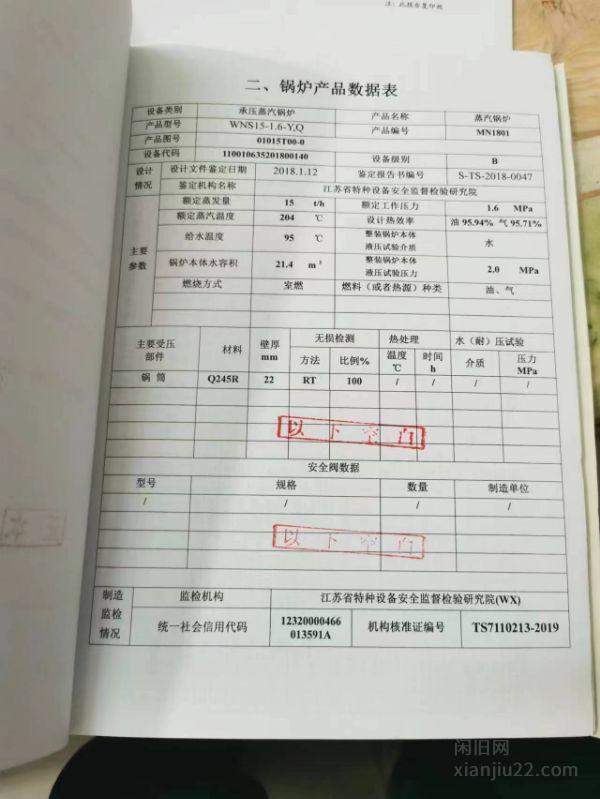 注：此报告复印无
二、锅炉产品数据表
设备类别 承压蒸汽锅炉 产品名称 蒸汽锅炉
产品型号 WNS15-1.6-Y,Q 产品编号 MN1801
产品图号 01015T00-0
设备代码 110010635201800140 设备级别 B
设计情况 设计文件鉴定日期 2018.1.12 鉴定报告书编号 S-TS-2018-0047
鉴定机构名称 江苏省特种设备安全监督检验研究院
主要参数 额定蒸发量 15 t/h 额定工作压力 1.6 MPa
额定蒸汽温度 204 ℃ 设计热效率 油 95.94% 气 95.71%
给水温度 95 ℃ 整装锅炉本体液压试验介质 水
锅炉本体水容积 21.4 m³ 整装锅炉本体液压试验压力 2.0 MPa
燃烧方式 室燃 燃料（或者热源）种类 油、气
主要受压部件 材料 壁厚 mm 无损检测 热处理 水（耐）压试验
方法 比例% 温度 ℃ 时间 h 介质 压力 MPa
锅 筒 Q245R 22 RT 100 / / / /
以下空白
安全阀数据
型号 规格 数量 制造单位
/ / / /
以下空白
制造监检情况 监检机构 江苏省特种设备安全监督检验研究院(WX)
统一社会信用代码 12320000466013591A 机构核准证编号 TS7110213-2019
闲旧网
xianjiu22.com